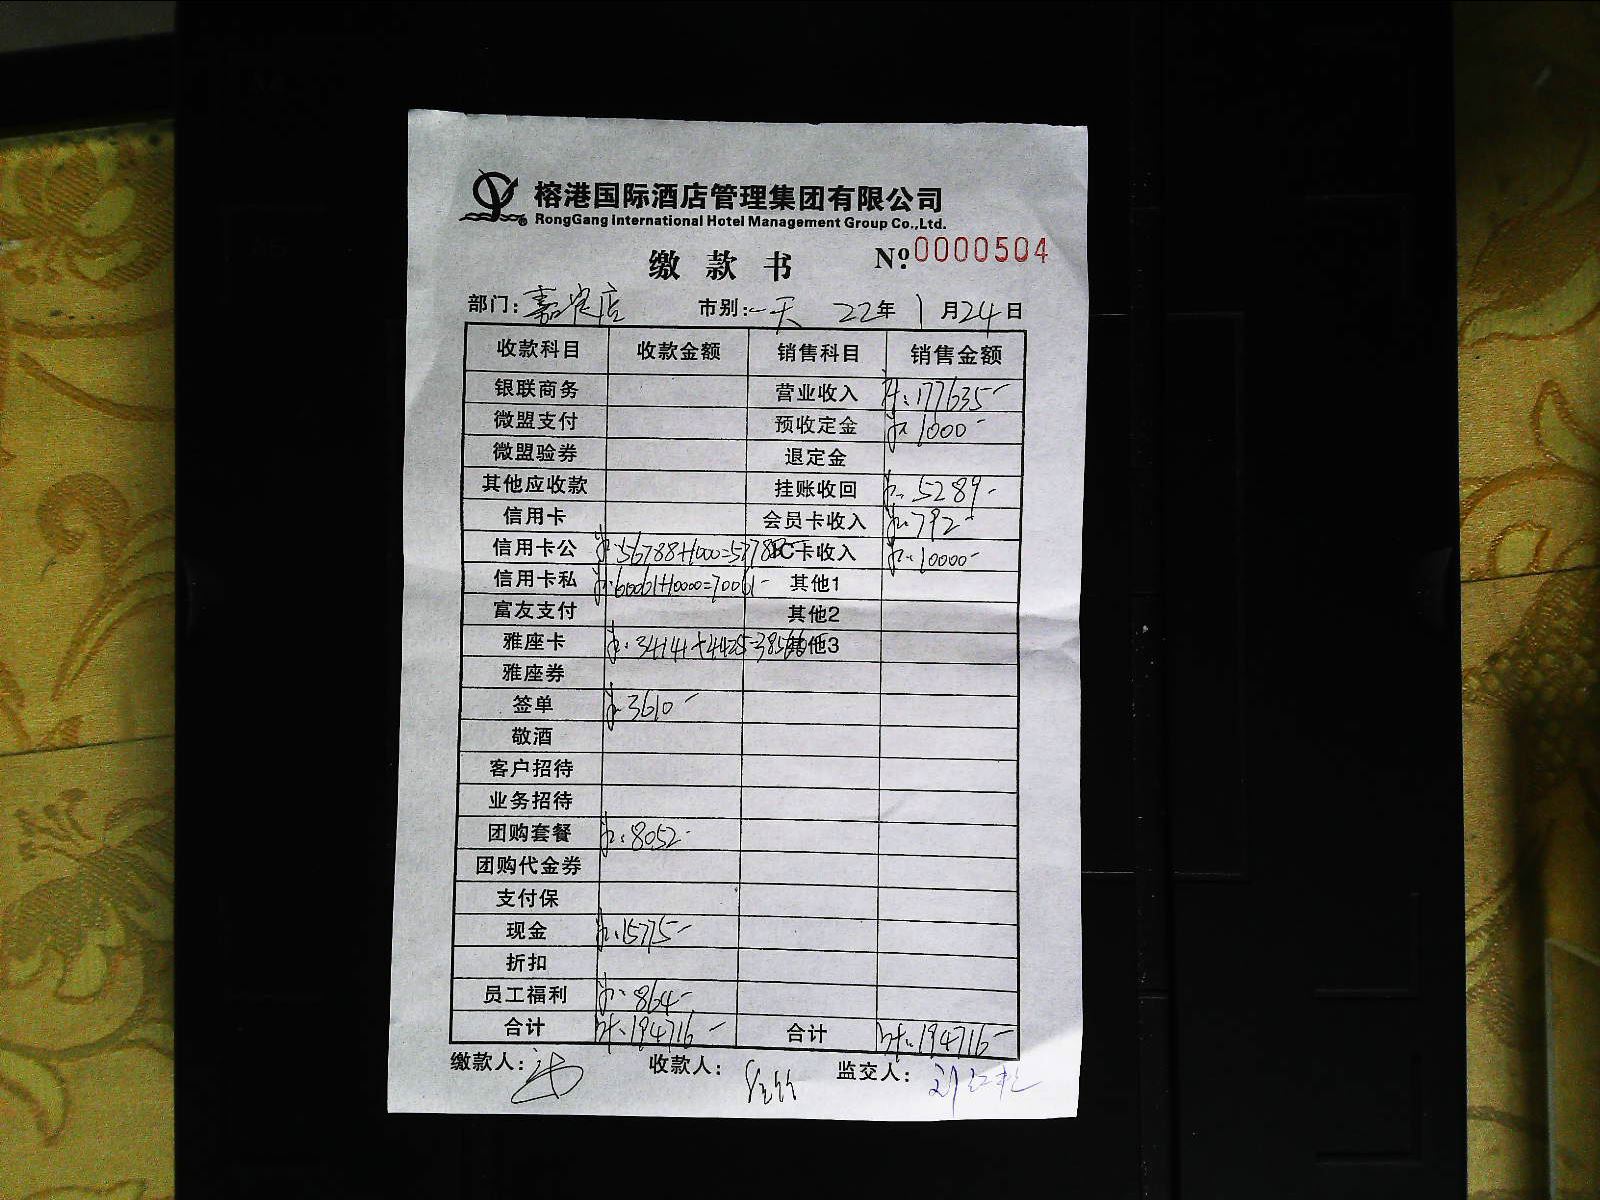 榕港国际酒店管理集团有限公司
RongGang International Hotel Management Group Co.,Ltd.
缴款书 №0000504
部门: 店 市别: 一天 22年 1月24日
收款科目 收款金额 销售科目 销售金额
银联商务 营业收入 177635-
微盟支付 预收定金 1000-
微盟验券 退定金
其他应收款 挂账收回 5289-
信用卡 会员卡收入 792-
信用卡公 56788+1000=57788- IC卡收入 10000-
信用卡私 60061+10000=70061- 其他1
富友支付 其他2
雅座卡 34141+4425=38566 其他3
雅座券
签单 3610-
敬酒
客户招待
业务招待
团购套餐 8052-
团购代金券
支付保
现金 15775-
折扣
员工福利 864-
合计 194716- 合计 194716-
缴款人: 收款人: 监交人: